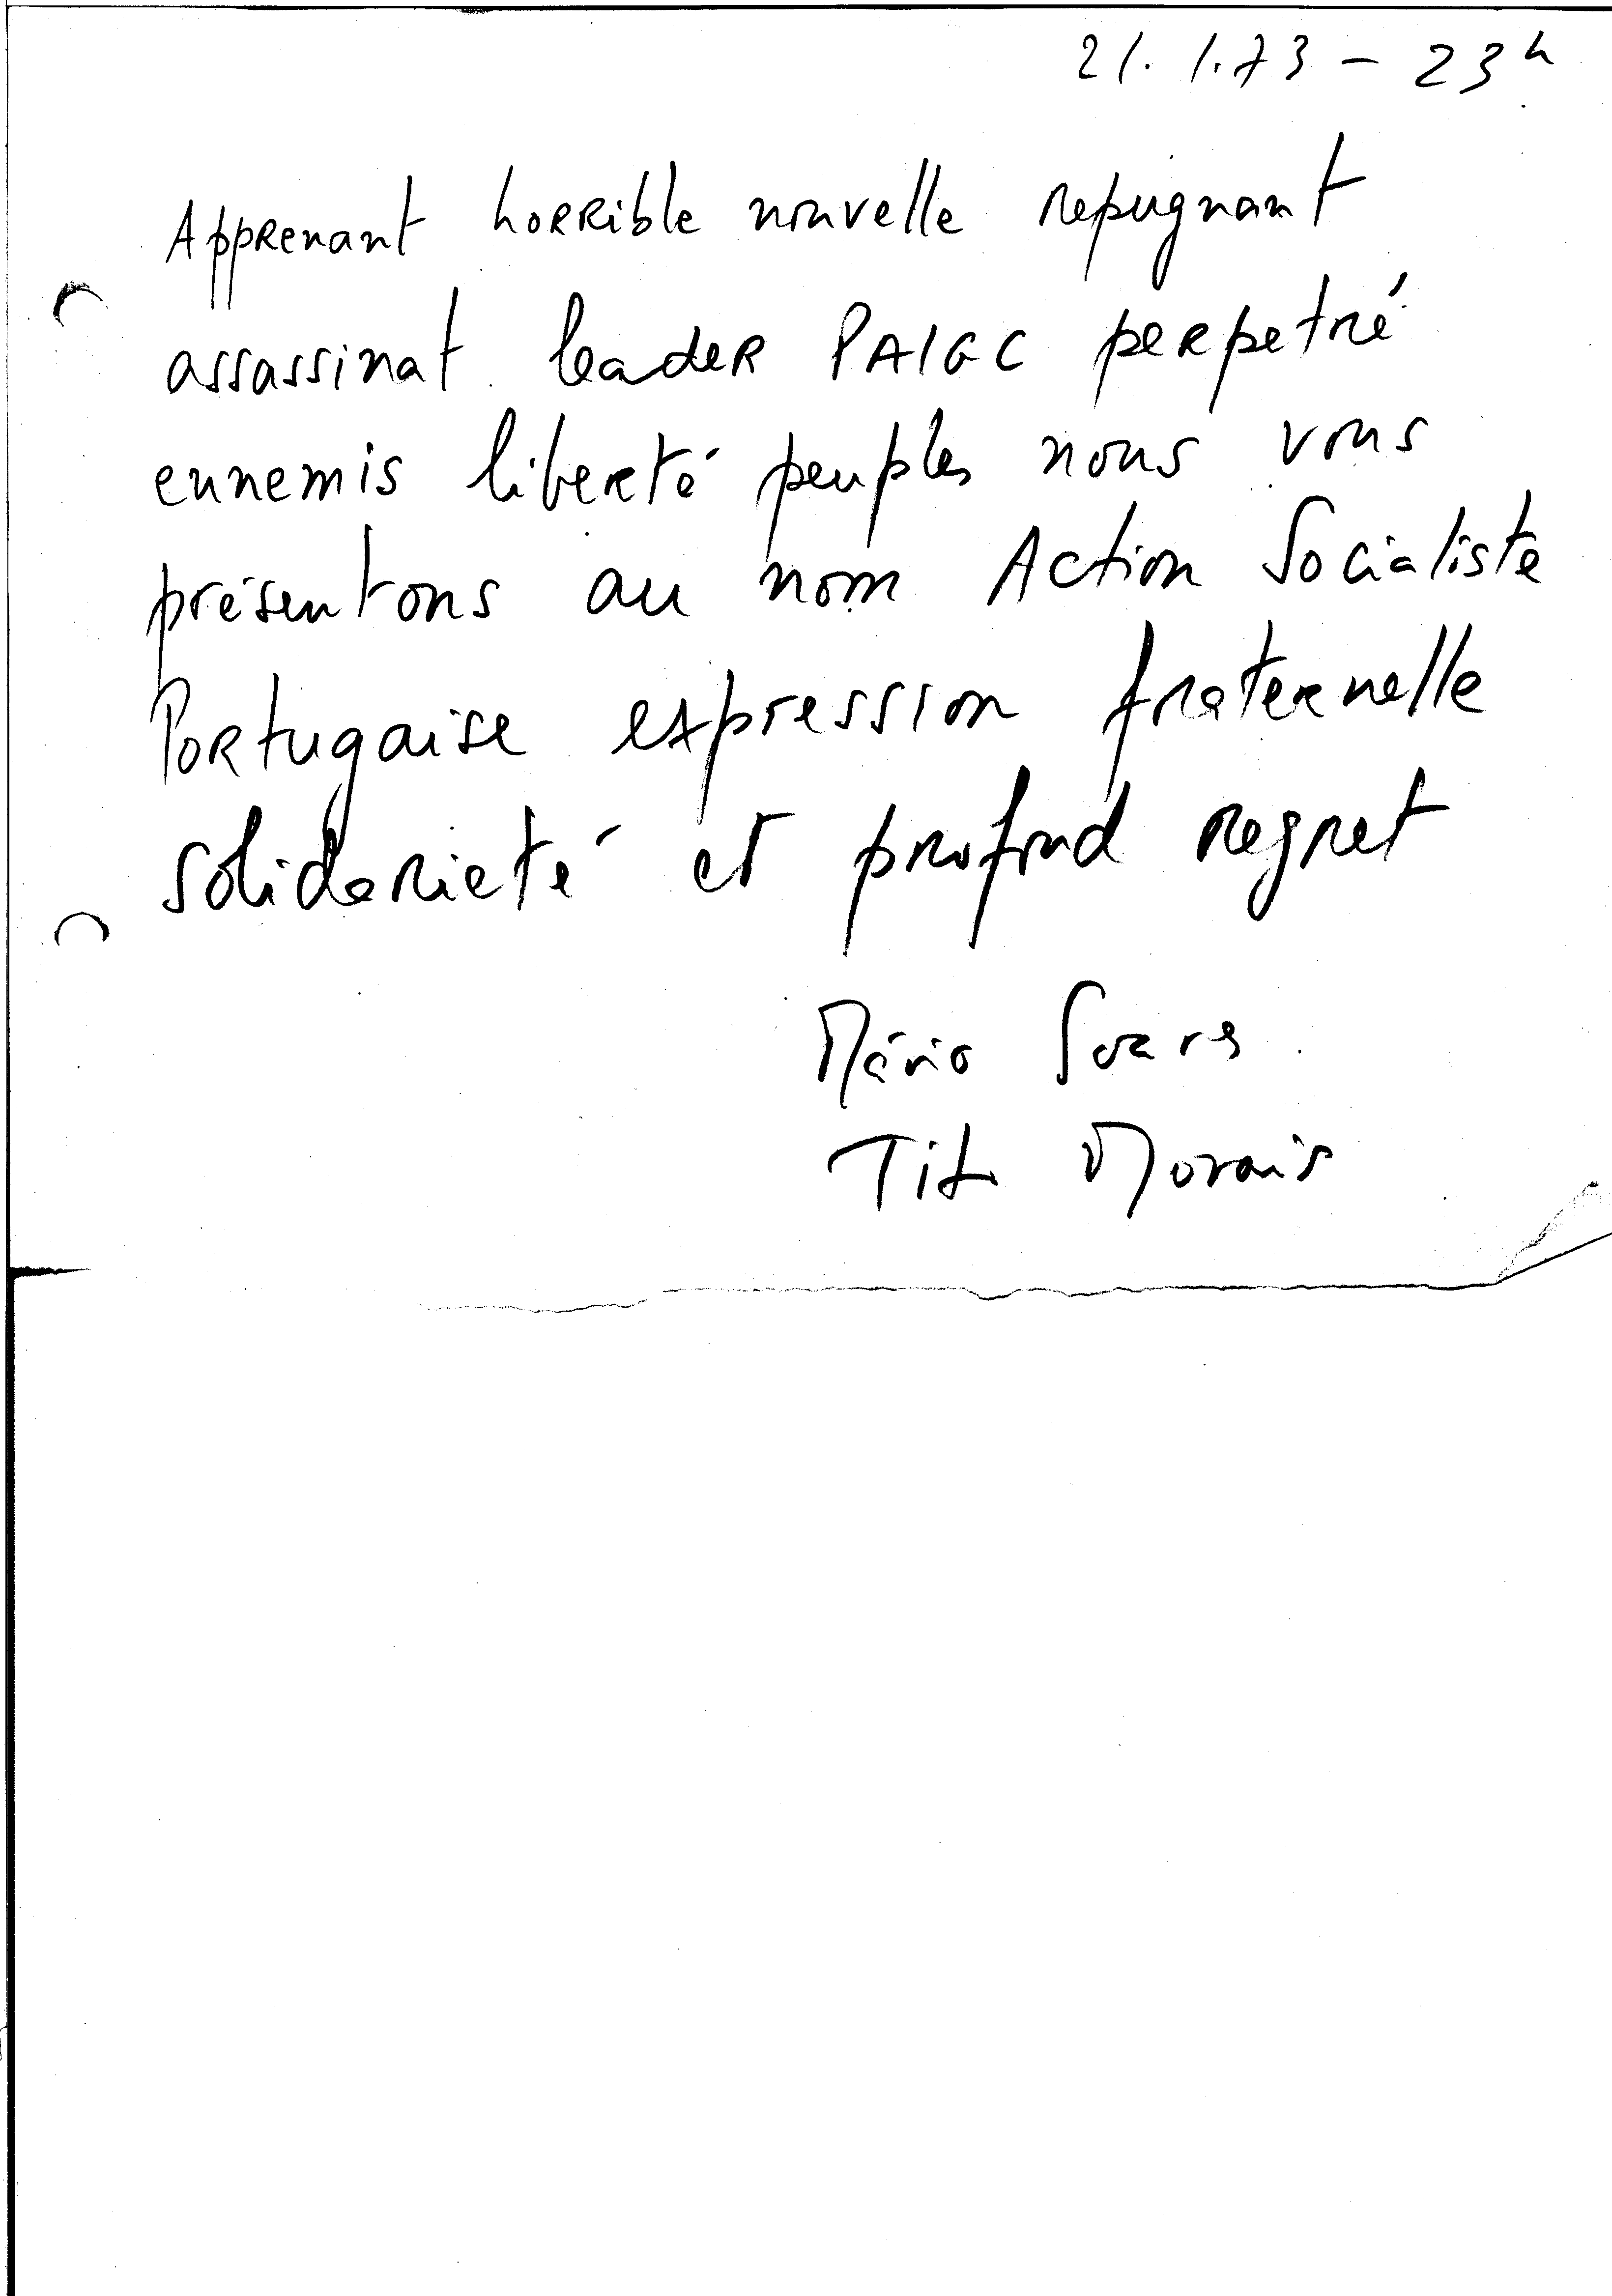 21.1.73 - 23h
Apprenant horrible nouvelle repugnant
assassinat leader PAIGC perpetré
ennemis liberté peuples nous vous
présentons au nom Action Socialiste
Portugaise expression fraternelle
solidarieté et profond regret
Mário Soares
Tito Morais